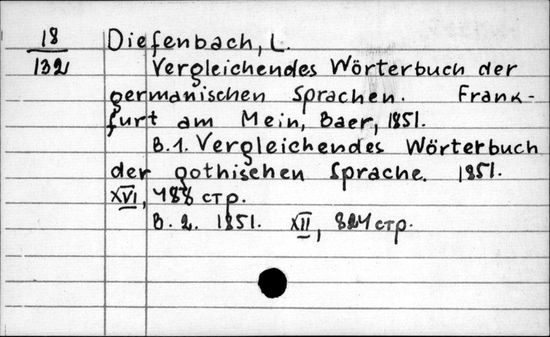 18
132
Diefenbach, L.
Vergleichendes Wörterbuch der
germanischen Sprachen. Frank-
furt am Mein, Baer, 1851.
B. 1. Vergleichendes Wörterbuch
der gothischen Sprache. 1851.
XVI, 488 стр.
B. 2. 1851. XII, 824 стр.